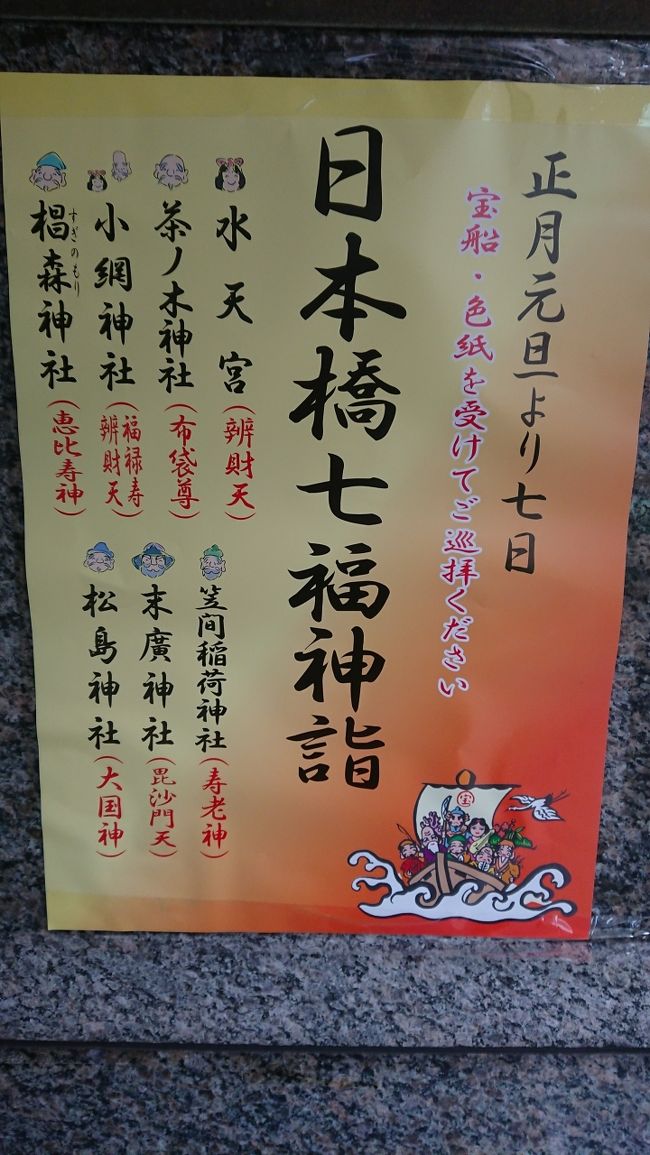 正月元旦より七日
宝船・色紙を受けてご巡拝ください
日本橋七福神詣
水天宮(辨財天)
茶ノ木神社(布袋尊)
小網神社(福禄寿 辨財天)
椙森神社(恵比寿神)
すぎのもり
笠間稲荷神社(寿老神)
末廣神社(毘沙門天)
松島神社(大国神)
宝